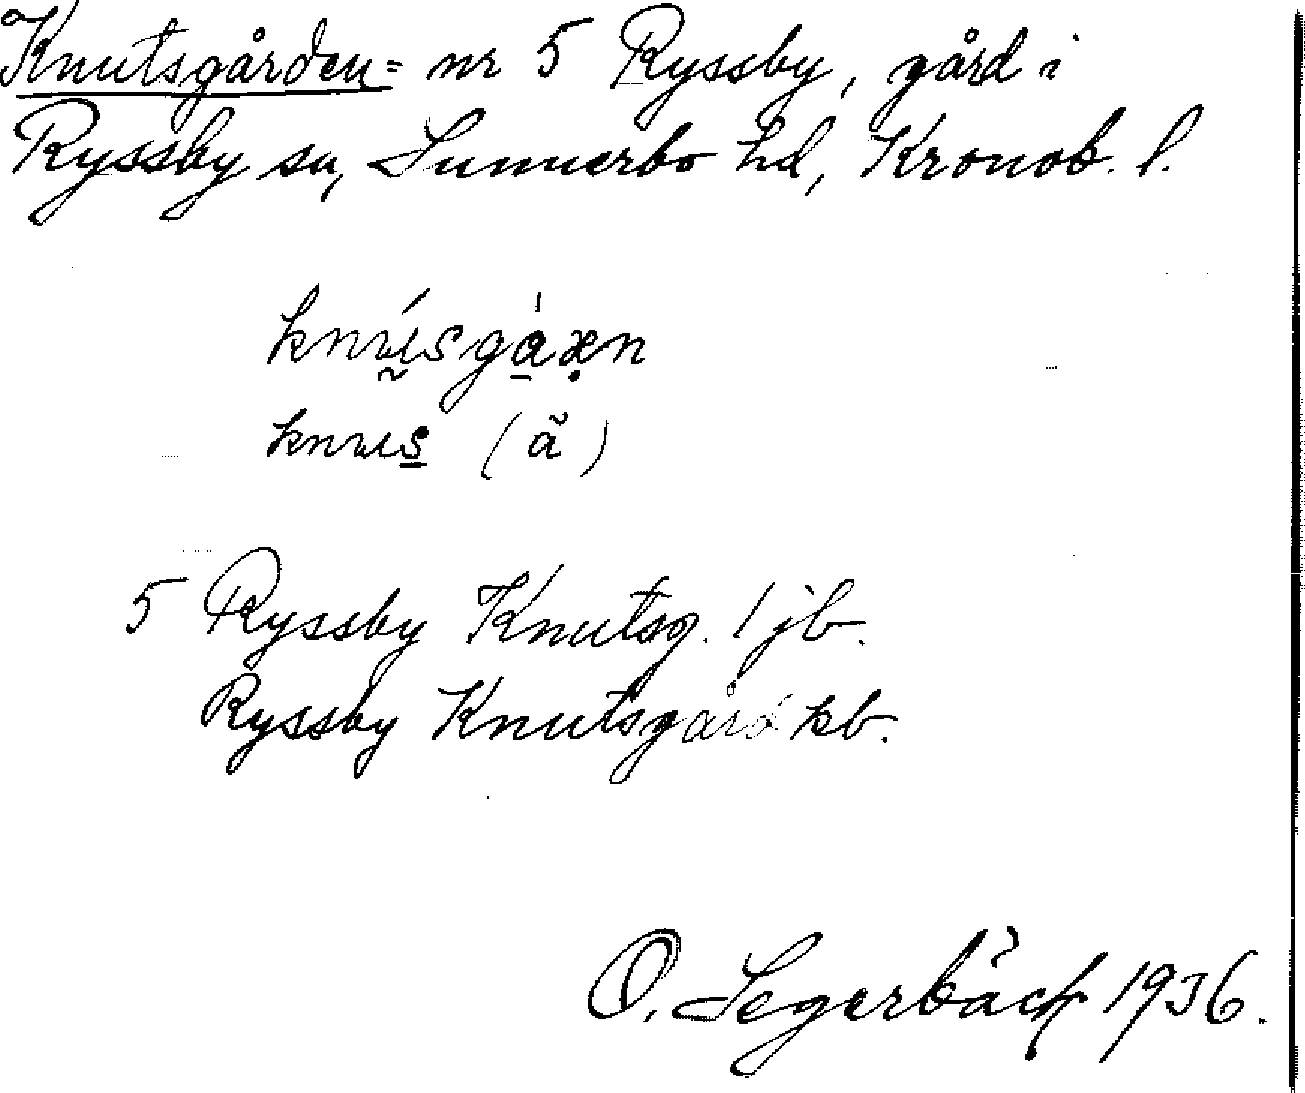 Knutsgården = nr 5 Ryssby, gård i
Ryssby sn, Sunnerbo hd, Kronob. l.
knɯ́sgàxn
knɯs (ã)
5 Ryssby Knutsg. 1 jb.
Ryssby Knutsgård kb.
O. Segerbäck 1936.